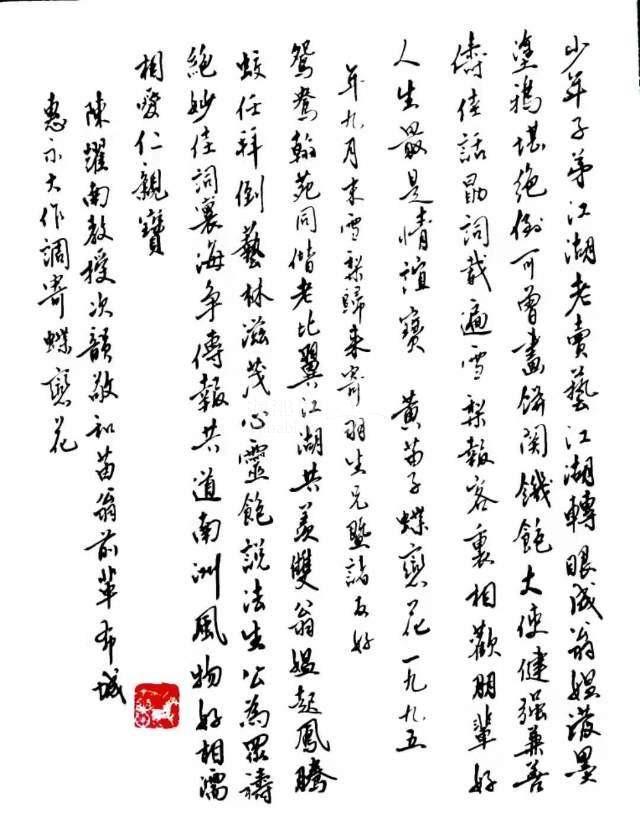 少年子弟江湖老賣藝江湖轉眼成翁媼潑墨
塗鴉堪絕倒可曾畫餅関饑飽大使健强兼善
儔佳話勛詞載遍雪梨報客裏相歡朋輩好
人生最是情誼寶 黄苗子蝶戀花一九九五
年九月末雪梨歸来寄羽生兄暨諸友好
鴛鴦翰苑同偕老比翼江湖共羨雙翁媼起鳳騰
蛟任拜倒藝林滋茂心靈飽說法生公為眾禱
絕妙佳詞裏海争傳報共道南洲風物好相濡
相愛仁親寶
陳耀南教授次韻敬和苗翁前輩布城
惠示大作調寄蝶戀花